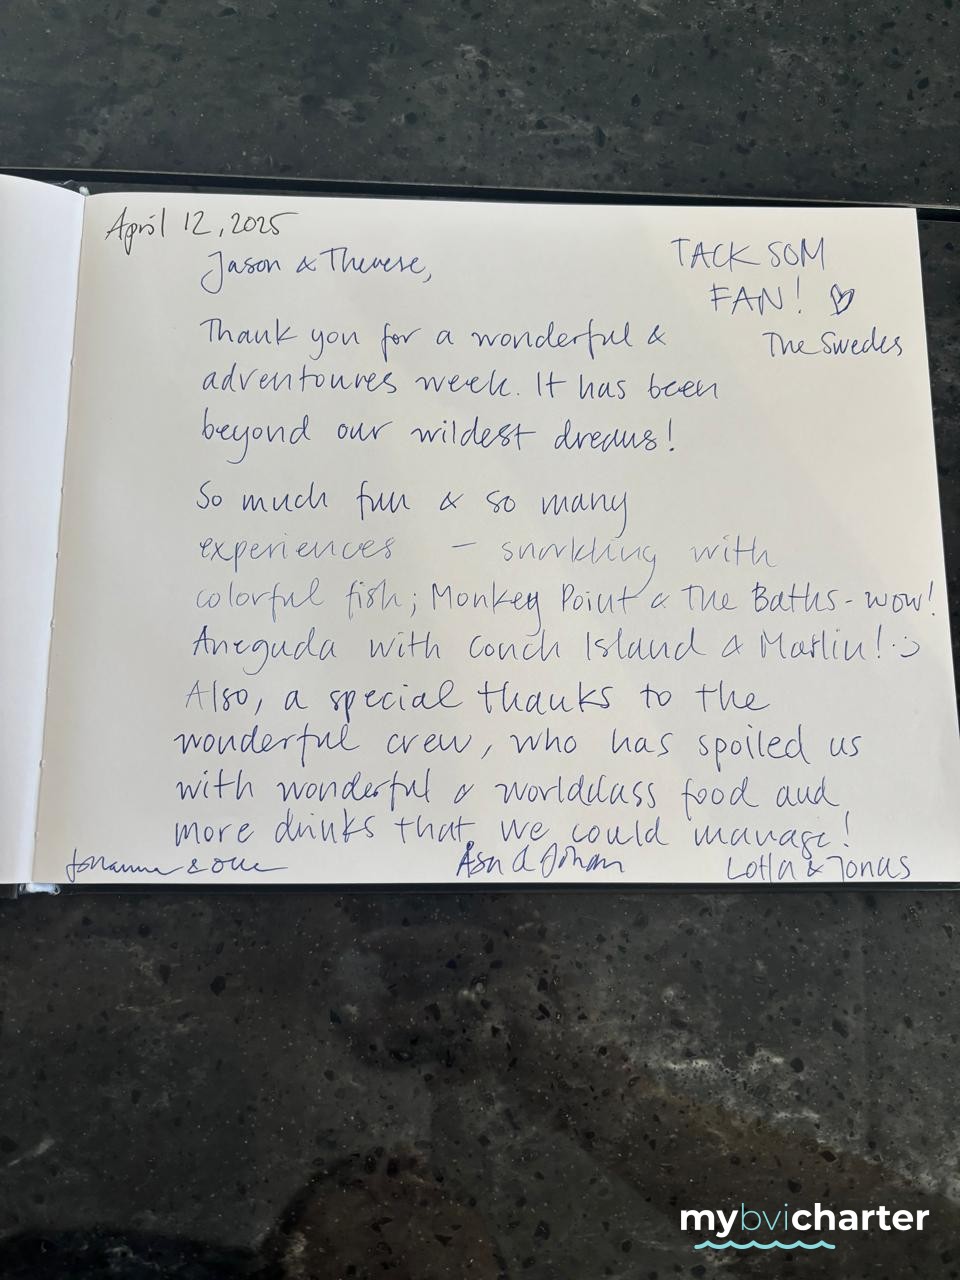 April 12, 2025
Jason & Therese,
TACK SOM
FAN! ♡
The Swedes
Thank you for a wonderful &
adventoures week. It has been
beyond our wildest dreams!
So much fun & so many
experiences – snorkling with
colorful fish; Monkey Point & The Baths - wow!
Aneguda with Conch Island & Marlin! :)
Also, a special thanks to the
wonderful crew, who has spoiled us
with wonderful & worldclass food and
more drinks that we could manage!
Johanna & Olle
Åsa & Johan
Lotta & Jonas
mybvicharter